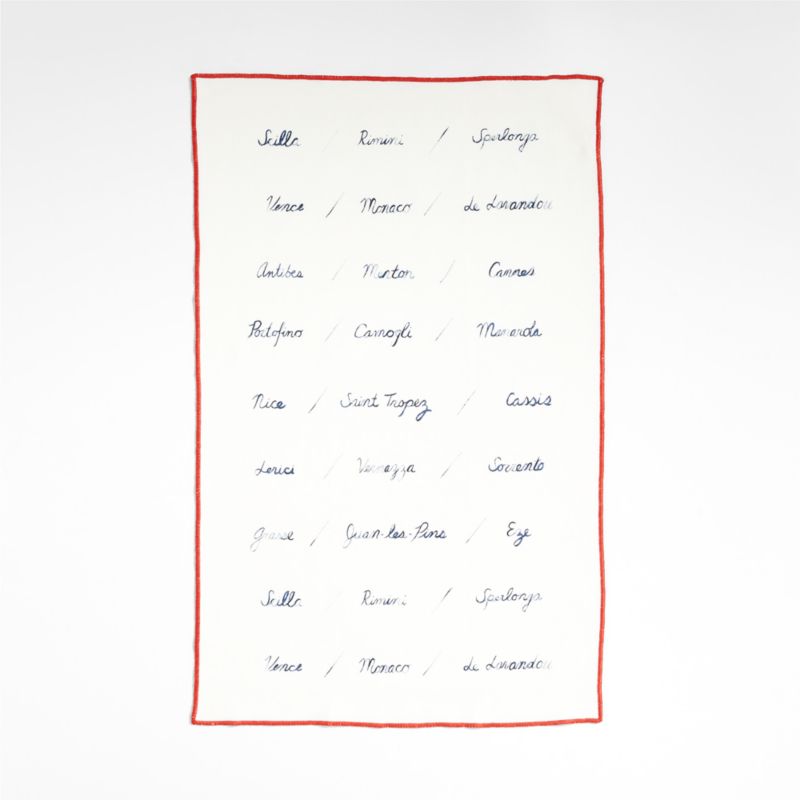 Scilla / Rimini / Sperlonga
Vence / Monaco / Le Lavandou
Antibes / Menton / Cannes
Portofino / Camogli / Manarola
Nice / Saint Tropez / Cassis
Lerici / Vernazza / Sorrento
Grasse / Juan-les-Pins / Eze
Scilla / Rimini / Sperlonga
Vence / Monaco / Le Lavandou